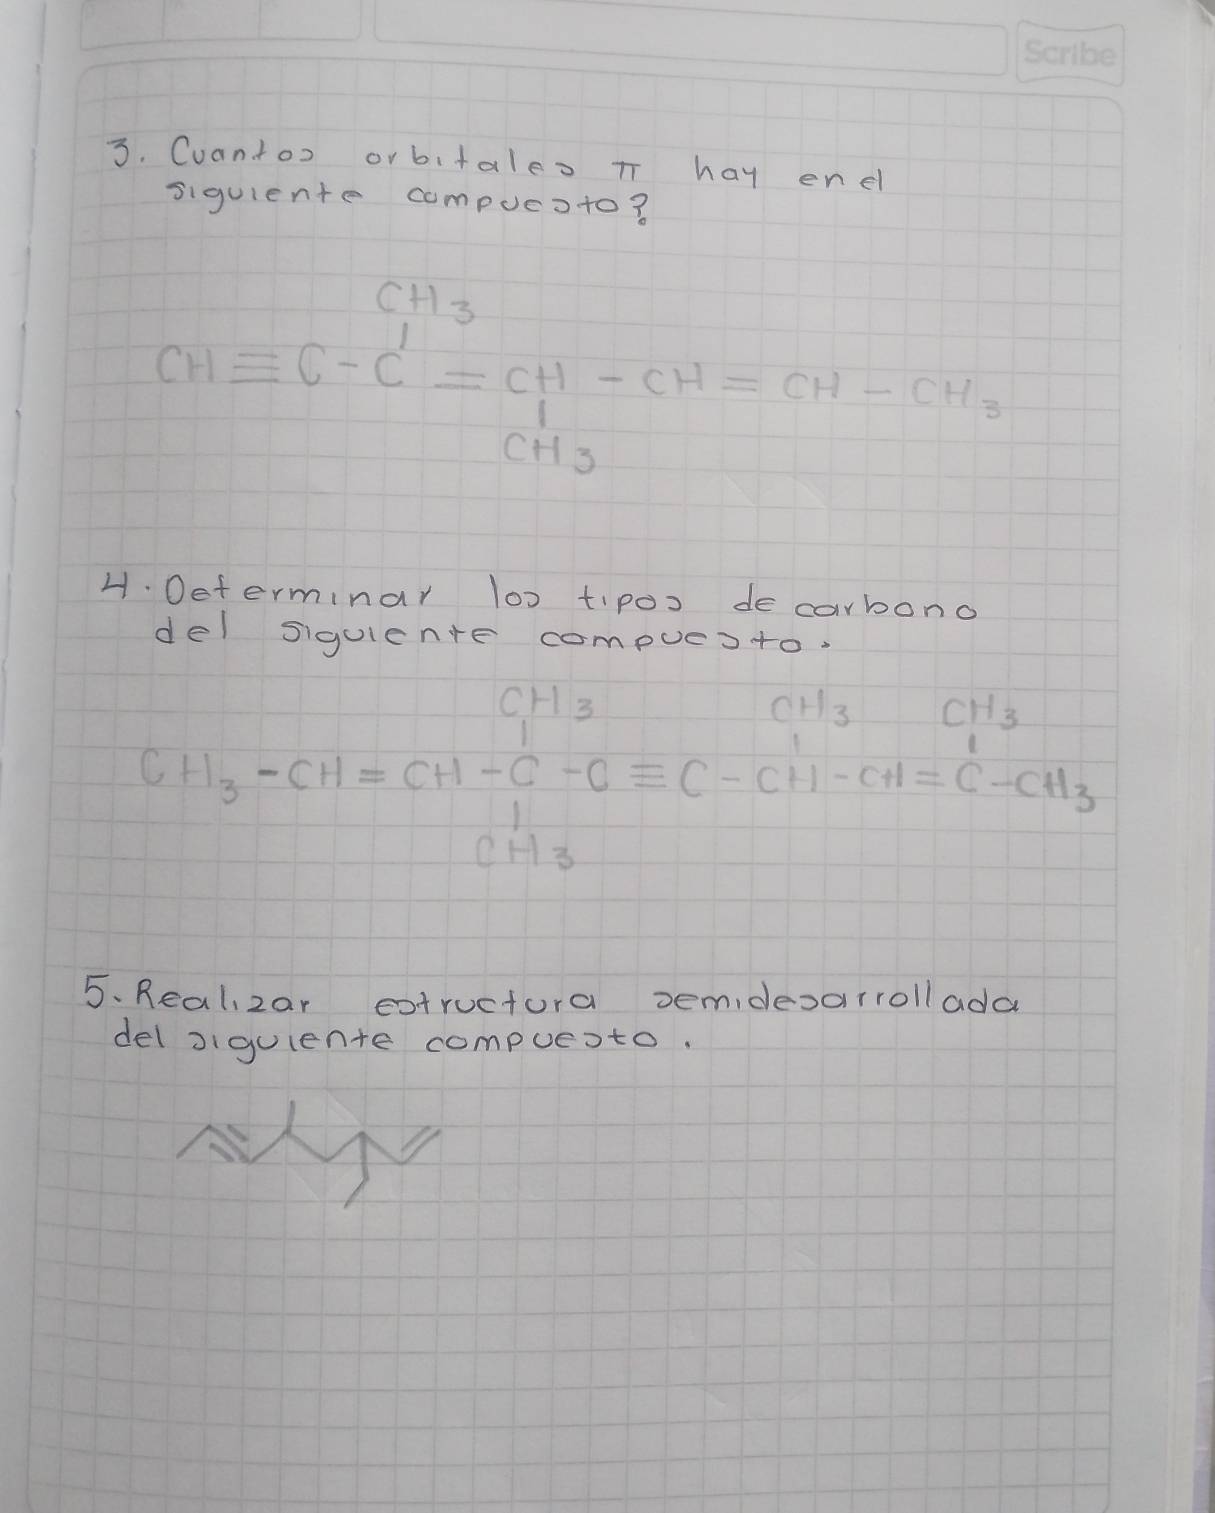 Scribe
3. Cuantos orbitales π hay en el
siguiente compuesto?
CH3
CH≡C-C=CH-CH=CH-CH3
CH3
4. Determinar los tipos de carbono
del siguiente compuesto.
CH3 CH3 CH3
CH3-CH=CH-C-C≡C-CH-CH=C-CH3
CH3
5. Realizar estructura semidesarrollada
del siguiente compuesto.